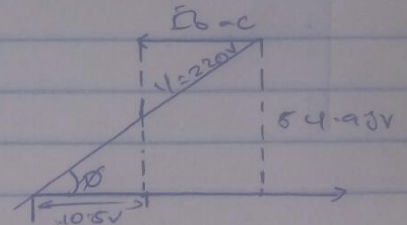 Eb ac
V=220V
54.95V
ø
10.5V